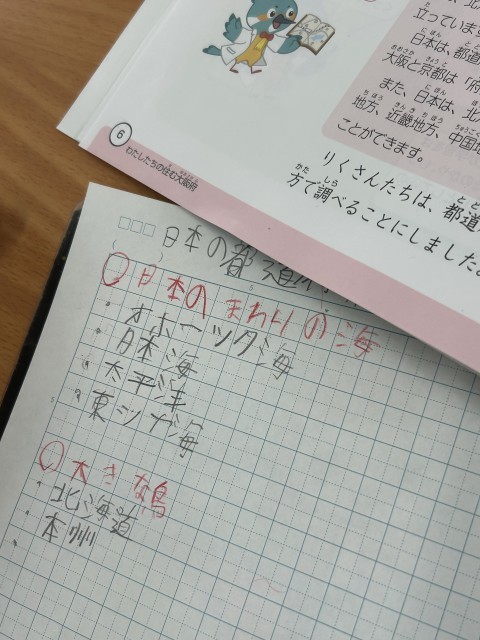 立っています
日本は、都道
大阪と京都は「府
また、日本は、北
地方、近畿地方、中国地
ことができます。
りくさんたちは、都道
方で調べることにしました。
6
わたしたちの住む大阪府
日本の都道
日本のまわりの海
・オホーツク海
・日本海
・太平洋
・東シナ海
大きな島
・北海道
・本州
・